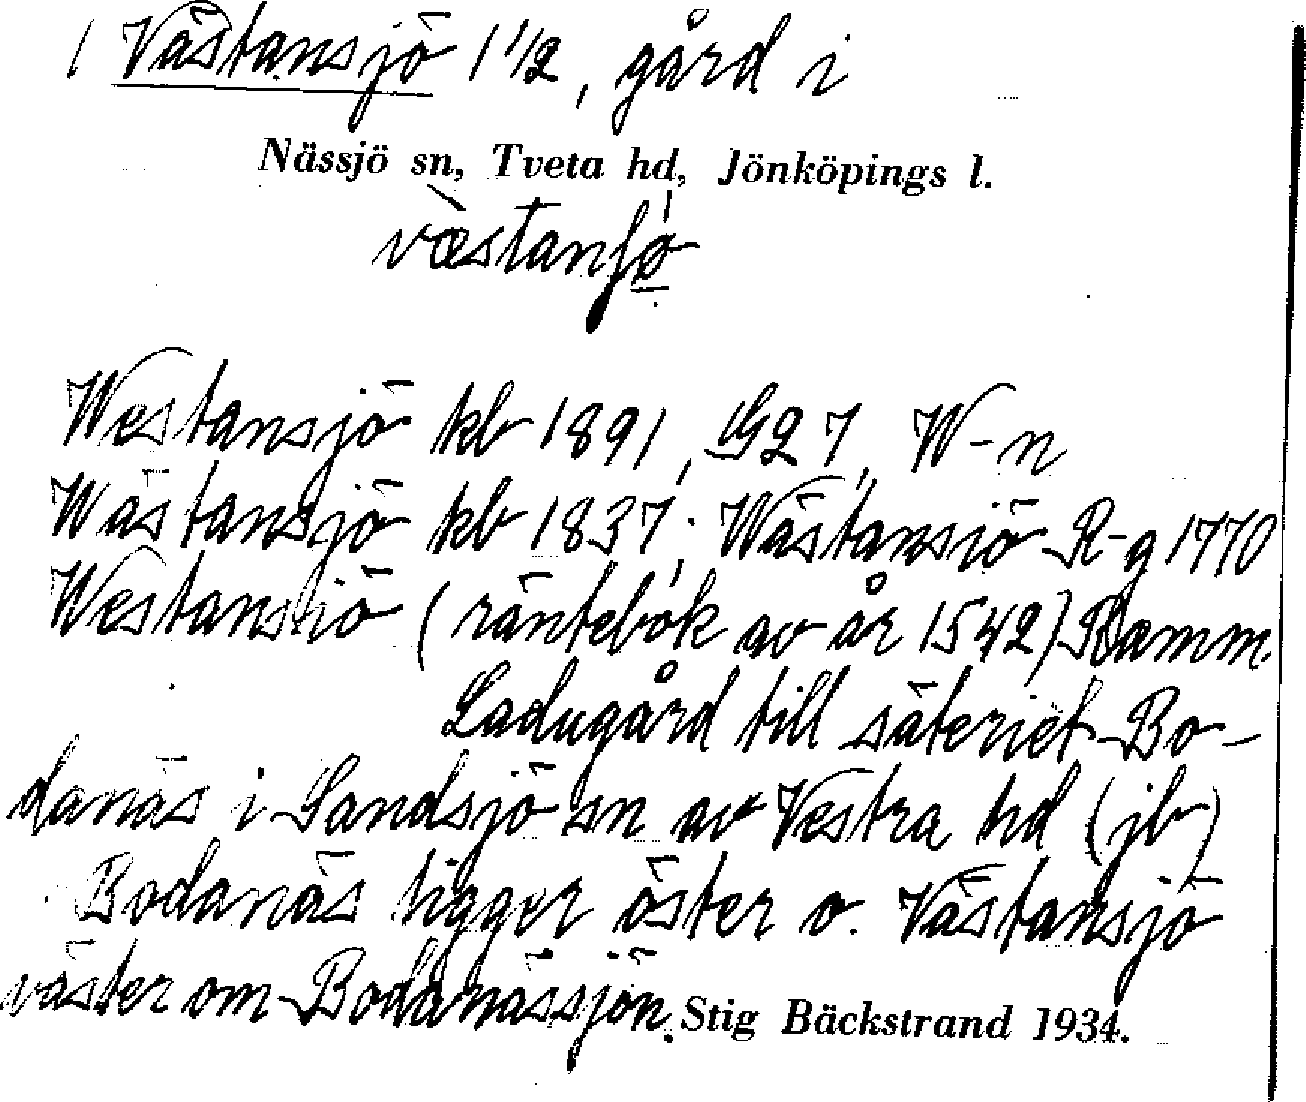 1 Västansjö 1 1/2, gård i
Nässjö sn, Tveta hd, Jönköpings l.
Westansjö kb 1891, G27, W-n
Wästansjö kb 1837; Wästansiö R-g 1770
Westansiö (räntebok av år 1542) Ramm.
Ladugård till säteriet Bo-
danäs i Sandsjö sn av Vestra hd (jb)
Bodanäs ligger öster o. Västansjö
väster om Bodanässjön. Stig Bäckstrand 1934.